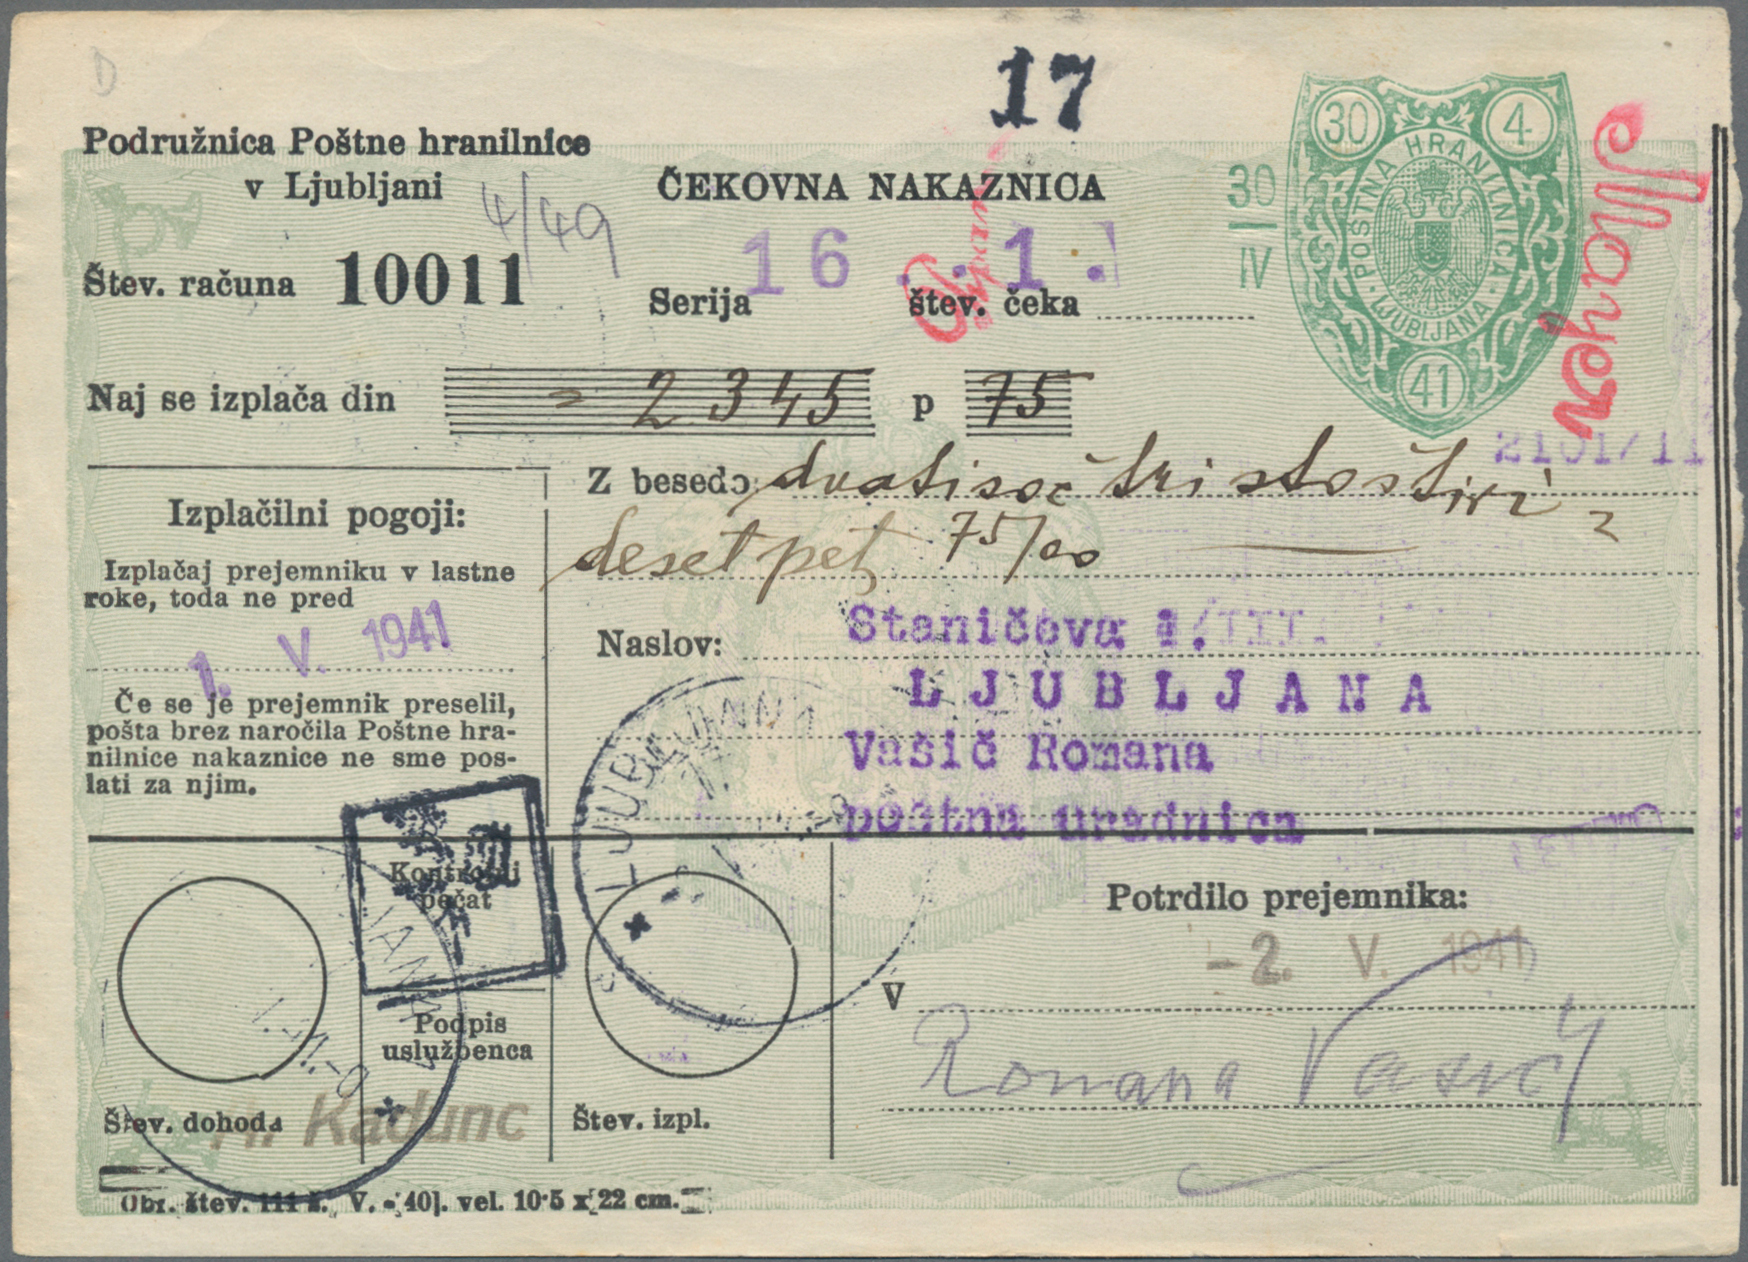 17
Podružnica Poštne hranilnice
v Ljubljani
4/49
ČEKOVNA NAKAZNICA
30 4
POŠTNA HRANILNICA
LJUBLJANA
41
30
IV
Mayer
Štev. računa 10011
Serija 16 . . 1 .
štev. čeka
Naj se izplača din = 2345 p 75
2101/11
Z besedo: dvatisoč tristoštiri
desetpet 75/00
Izplačilni pogoji:
Izplačaj prejemniku v lastne
roke, toda ne pred
1. V. 1941
Če se je prejemnik preselil,
pošta brez naročila Poštne hra-
nilnice nakaznice ne sme pos-
lati za njim.
Naslov: Staničeva /III.
LJUBLJANA
Vašič Romana
poštna uradnica
LJUBLJANA 1
Kontrolni
pečat
Podpis
uslužbenca
Kadunc
Štev. dohoda
Štev. izpl.
Potrdilo prejemnika:
-2. V. 1941
V
Romana Vašič
Obr. štev. 111 č. V. - 40. vel. 10·5 x 22 cm.